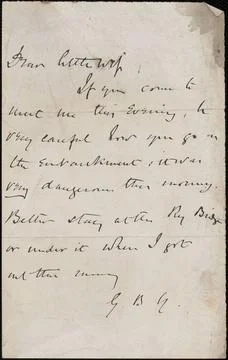 Dear little Wife,
If you come to
meet me this Evening, be
very careful how you go on
the Embankment; it was
very dangerous this morning.
Better stay at the Ry Bridge
or under it when I got
out this morng
G B